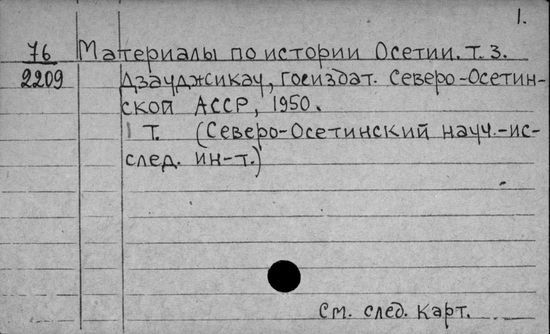 1.
76 Материалы по истории Осетии. Т. 3.
2209 Дзауджикау, Госиздат. Северо-Осетин-
ской АССР, 1950.
1 т. (Северо-Осетинский науч.-ис-
след. ин-т.)
См. след. карт.